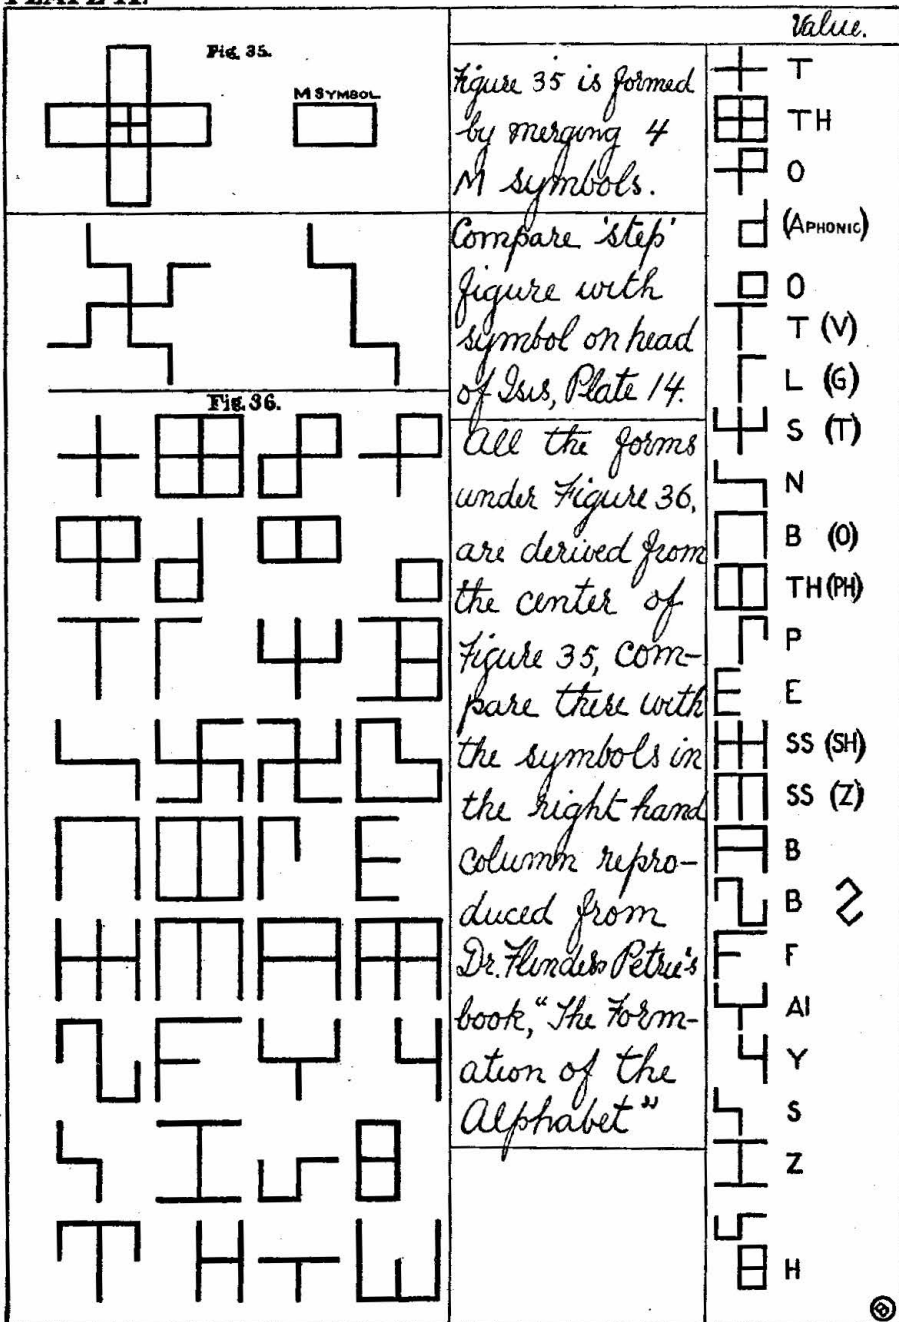 Value.
Fig. 35.
M SYMBOL
Figure 35 is formed
by merging 4
M symbols.
Compare 'step'
figure with
symbol on head
of Isis, Plate 14.
Fig. 36.
All the forms
under Figure 36,
are derived from
the center of
Figure 35, com-
pare there with
the symbols in
the right hand
column repro-
duced from
Dr. Flinders Petrie's
book, "The Form-
ation of the
Alphabet"
T
TH
O
(APHONIC)
O
T (V)
L (G)
S (T)
N
B (O)
TH (PH)
P
E
SS (SH)
SS (Z)
B
B
F
AI
Y
S
Z
H
B